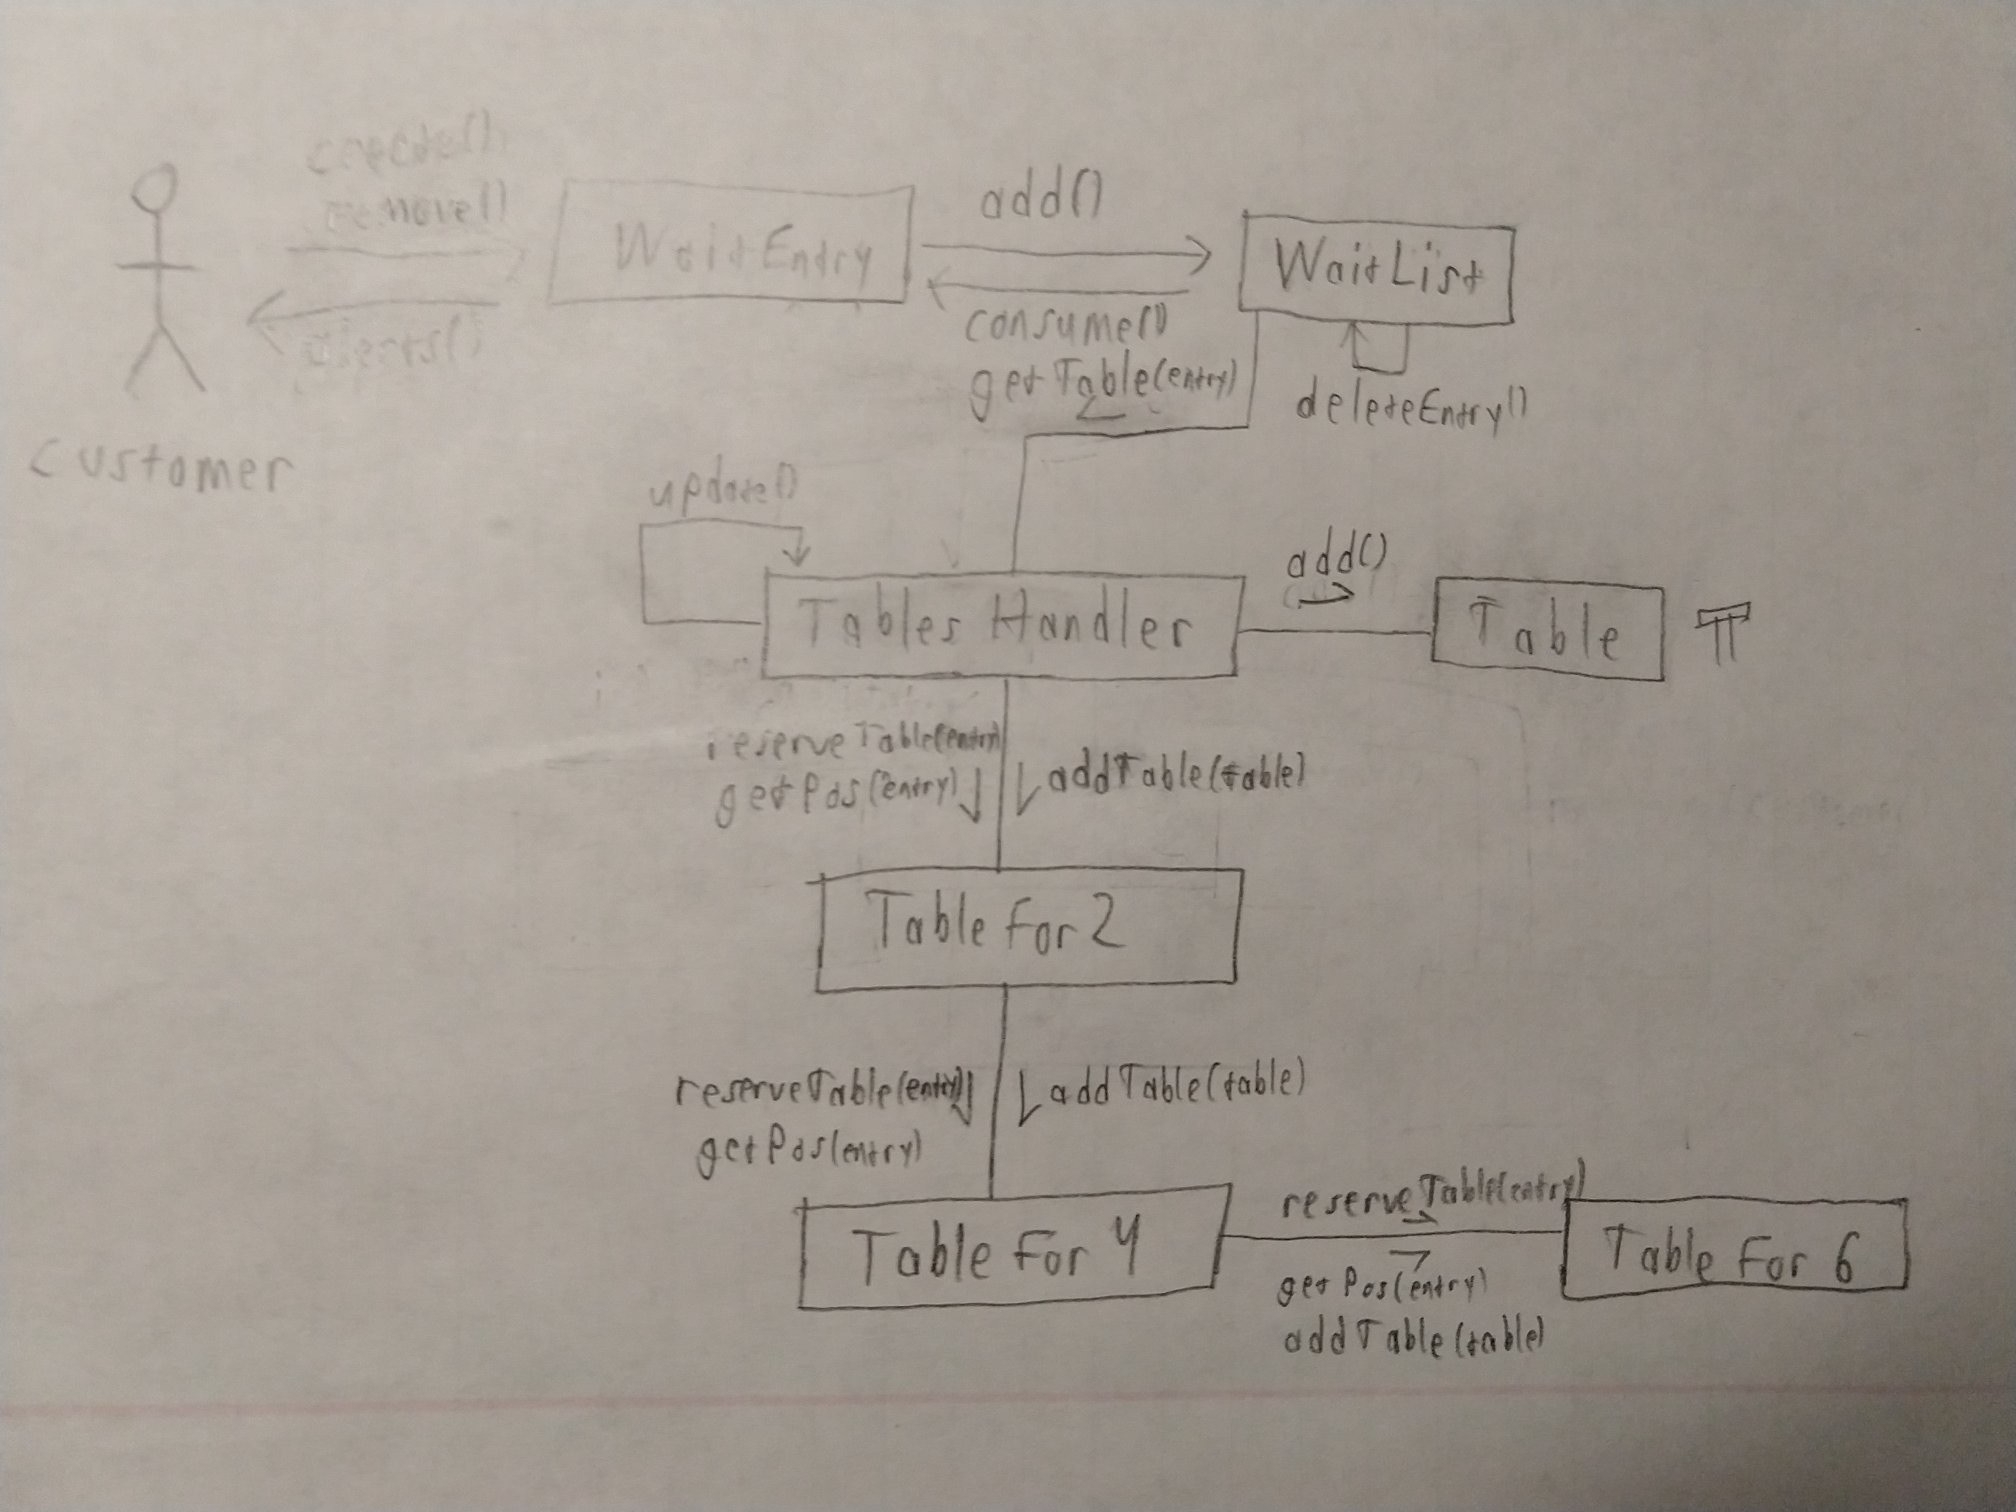 create()
remove()
WaitEntry
add()
WaitList
alerts()
consume()
getTable(entry)
deleteEntry()
customer
update()
Tables Handler
add()
Table
reserveTable(entry)
getPos(entry)
addTable(table)
Table For 2
reserveTable(entry)
getPos(entry)
addTable(table)
Table For 4
reserveTable(entry)
getPos(entry)
addTable(table)
Table For 6